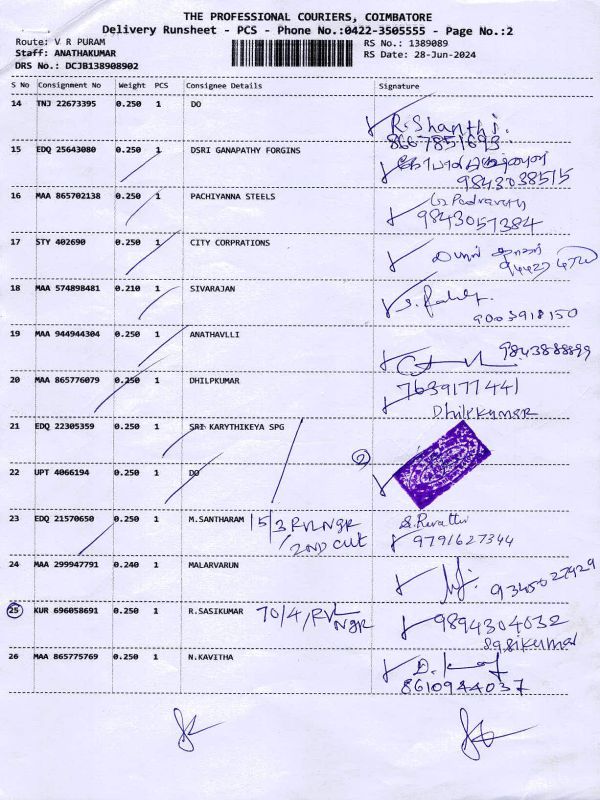 THE PROFESSIONAL COURIERS, COIMBATORE
Delivery Runsheet - PCS - Phone No.:0422-3505555 - Page No.:2
Route: V R PURAM
RS No.: 1389089
Staff: ANATHAKUMAR
RS Date: 28-Jun-2024
DRS No.: DCJB138908902
S No Consignment No Weight PCS Consignee Details Signature
14 TNJ 22673395 0.250 1 DO
R. Shanthi.
8667851693
15 EDQ 25643080 0.250 1 DSRI GANAPATHY FORGINS
9843038515
16 MAA 865702138 0.250 1 PACHIYANNA STEELS
9843057384
17 STY 402690 0.250 1 CITY CORPRATIONS
18 MAA 574898481 0.210 1 SIVARAJAN
9003918150
19 MAA 944944304 0.250 1 ANATHAVLLI
9843888899
20 MAA 865776079 0.250 1 DHILPKUMAR
7639177441
Dhilpkumar
21 EDQ 22305359 0.250 1 SRI KARYTHIKEYA SPG
2
22 UPT 4066194 0.250 1 DO
23 EDQ 21570650 0.250 1 M.SANTHARAM 15/3 RVLNGR
S. Revathi
/2ND CUT
9791627344
24 MAA 299947791 0.240 1 MALARVARUN
9345027929
25 KUR 696058691 0.250 1 R.SASIKUMAR 70/4, RVL
NGR
9894304032
Sasikumar
26 MAA 865775769 0.250 1 N.KAVITHA
8610944037